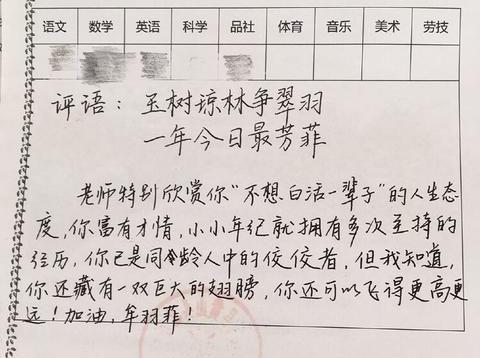 语文 数学 英语 科学 品社 体育 音乐 美术 劳技
评语：玉树琼林争翠羽
一年今日最芳菲
老师特别欣赏你“不想白活一辈子”的人生态
度，你富有才情，小小年纪就拥有多次主持的
经历，你已是同龄人中的佼佼者，但我知道，
你还藏有一双巨大的翅膀，你还可以飞得更高更
远！加油，牟羽菲！